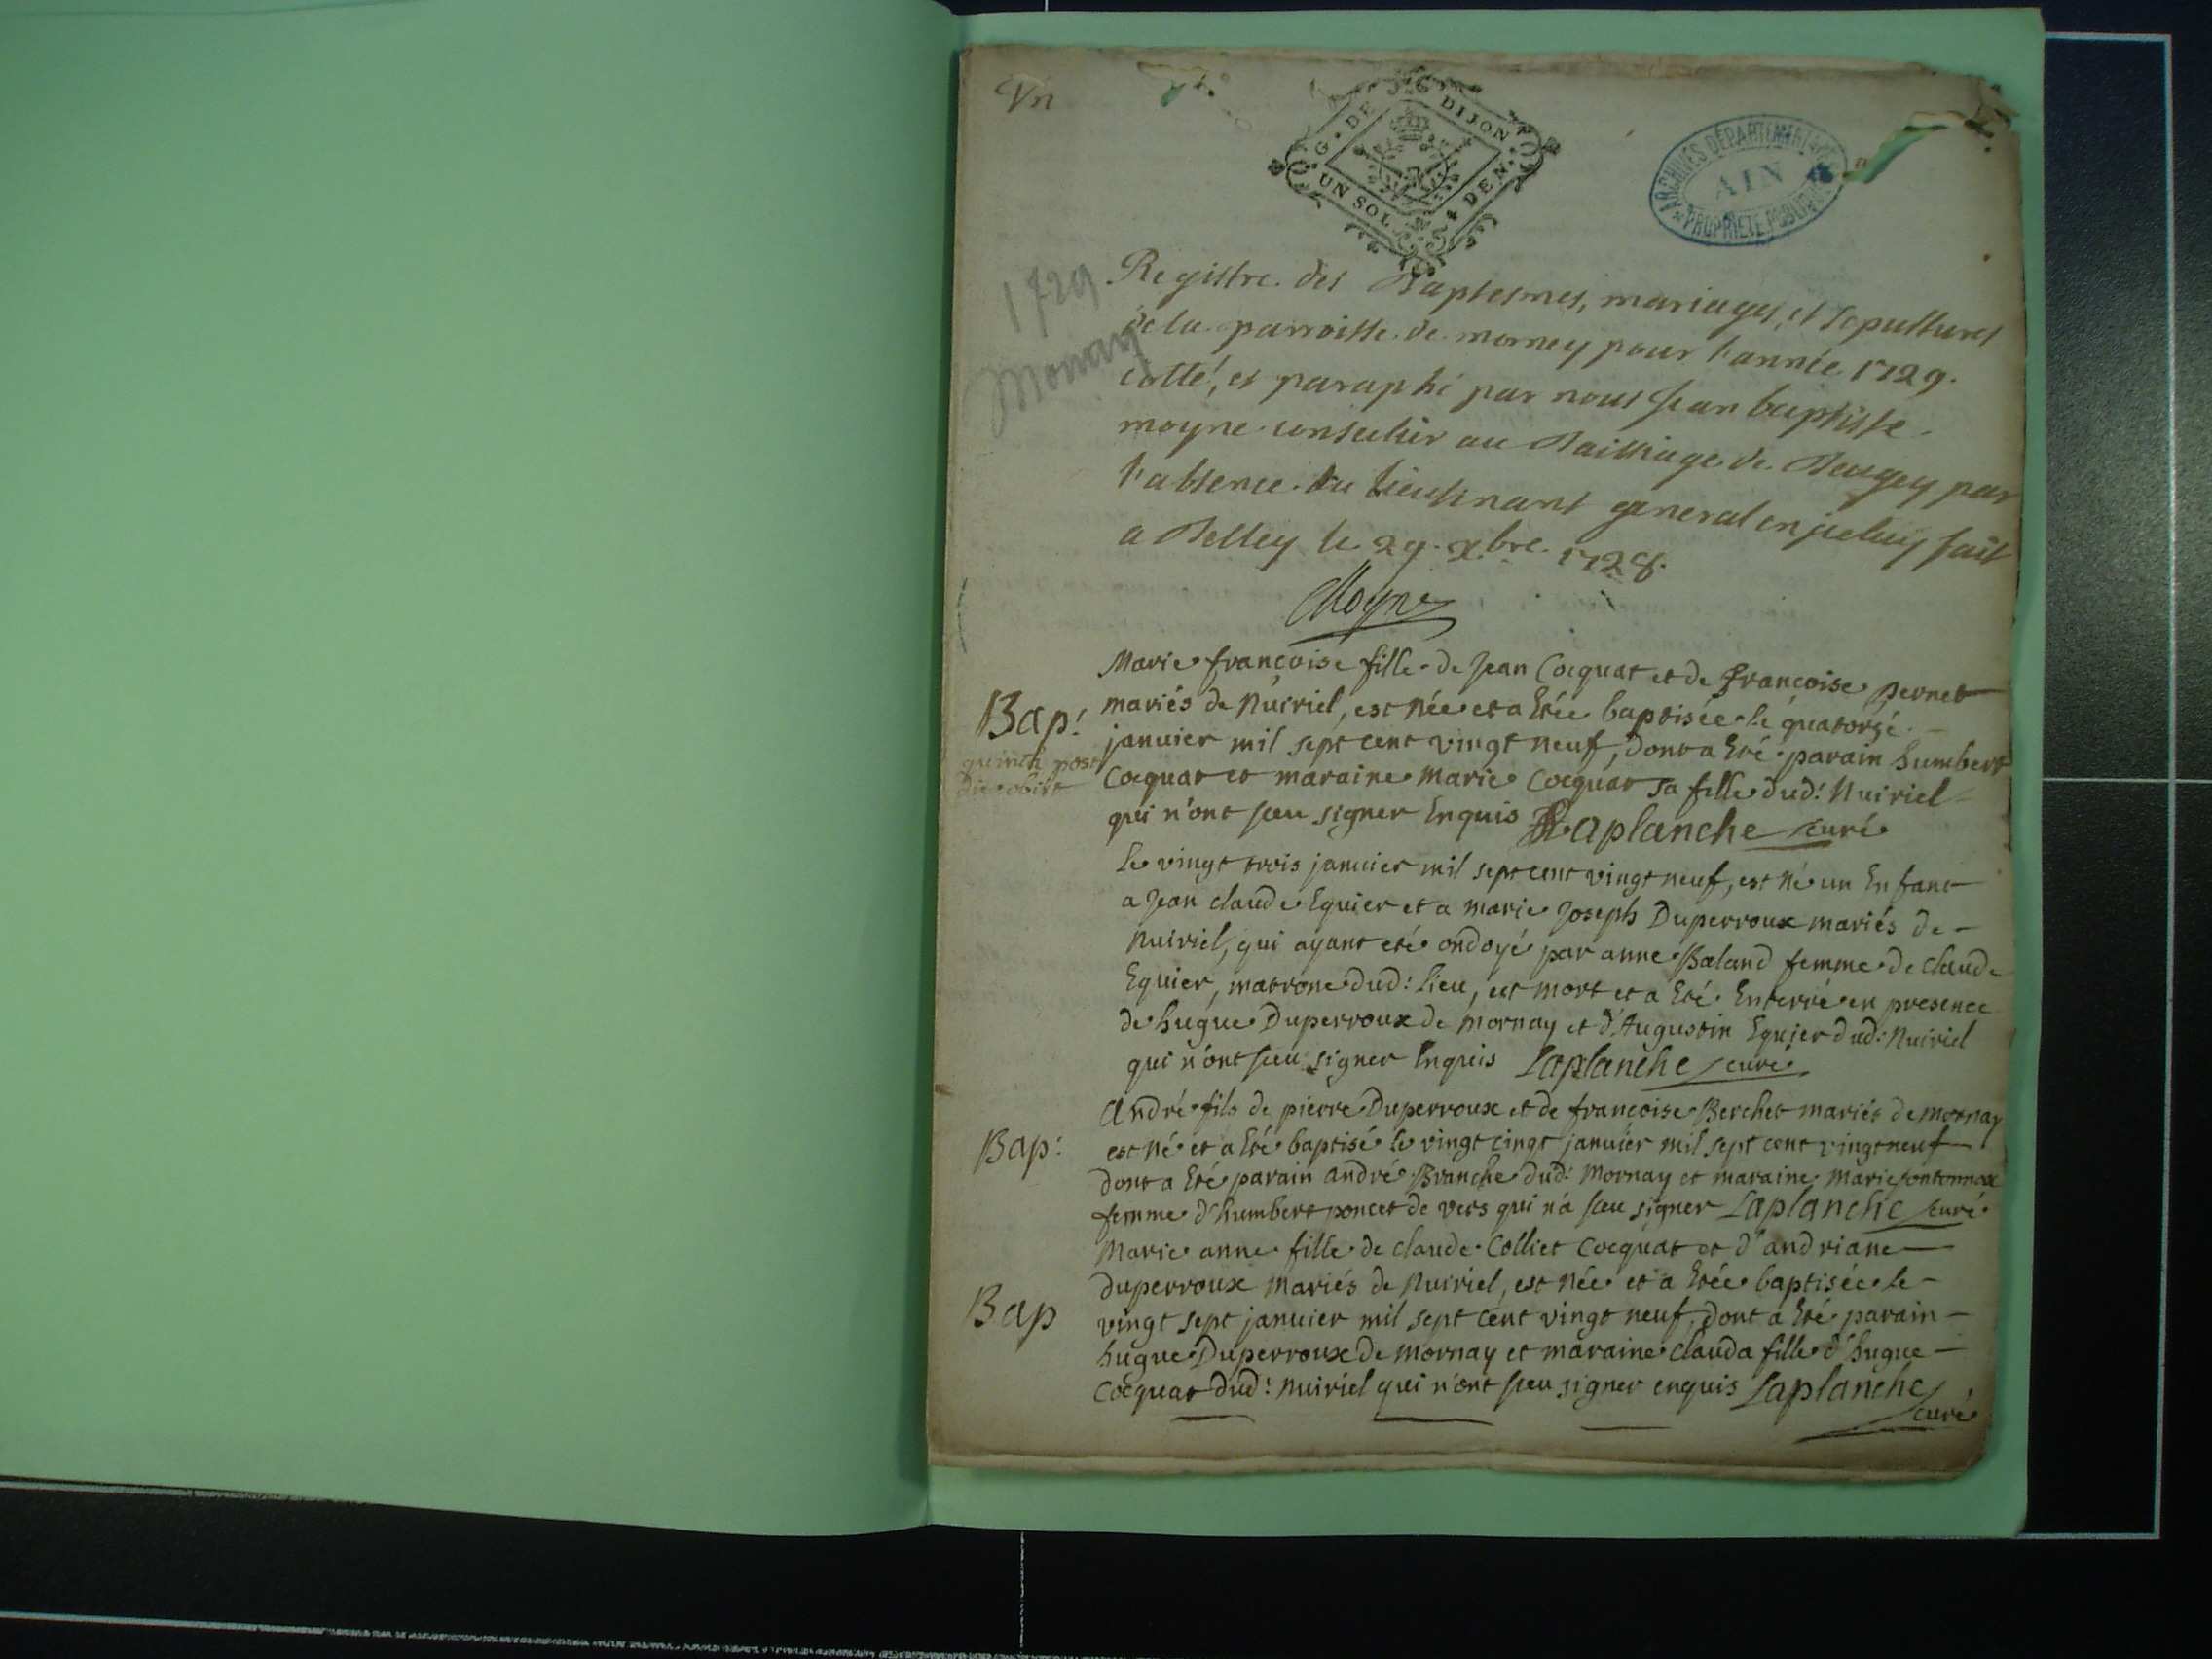 Vn
G. DE DIJON
UN SOL 4 DEN.
ARCHIVES DÉPARTEMENTALES
AIN
PROPRIÉTÉ PUBLIQUE
1729
Mornay
Registre des Baptesmes, mariages, et sepultures
de la parroisse de mornay pour l'année 1729.
cotté, et paraphé par nous Jean baptiste
moyne conseiller au Bailliage de Beugey par
l'absence du lieutenant general en jceluy fait
a Belley le 29. xbre 1728.
Moyne
Marie françoise fille de Jean Cocquat et de françoise pernet
Bap:
mariés de Nuiriel, est Née et a Etée baptisée le quatorzé
janvier mil sept cent vingt neuf, dont a Eté parain humbert
post
die obiit
Cocquat et maraine Marie Cocquat sa fille dud: Nuiriel
qui n'ont sceu signer Enquis Laplanche curé
le vingt trois janvier mil sept cent vingt neuf, est Né un Enfant
a Jean claude Eguier et a marie Joseph Duperroux mariés de
Nuiriel, qui ayant eté ondoyé par anne Baland femme de claude
Eguier, matrone dud: lieu, est mort et a Eté Enterré en presence
de hugue Duperroux de mornay et d'Augustin Eguier dud: Nuiriel
qui n'ont sceu signer Enquis Laplanche curé
André fils de pierre Duperroux et de françoise Berchet mariés de mornay
Bap:
est Né et a Eté baptisé le vingt cinqt janvier mil sept cent vingt neuf
dont a Eté parain andré Branche dud: Mornay et maraine Marie
femme d'humbert poncet de vers qui n'a sceu signer Laplanche curé
Marie anne fille de claude Colliet Cocquat et d'andriane
Bap
duperroux Mariés de Nuiriel, est Née et a Etée baptisée le
vingt sept janvier mil sept cent vingt neuf, dont a Eté parain
hugue Duperroux de mornay et maraine clauda fille d'hugue
Cocquat dud: Nuiriel qui n'ont sceu signer enquis Laplanche
curé